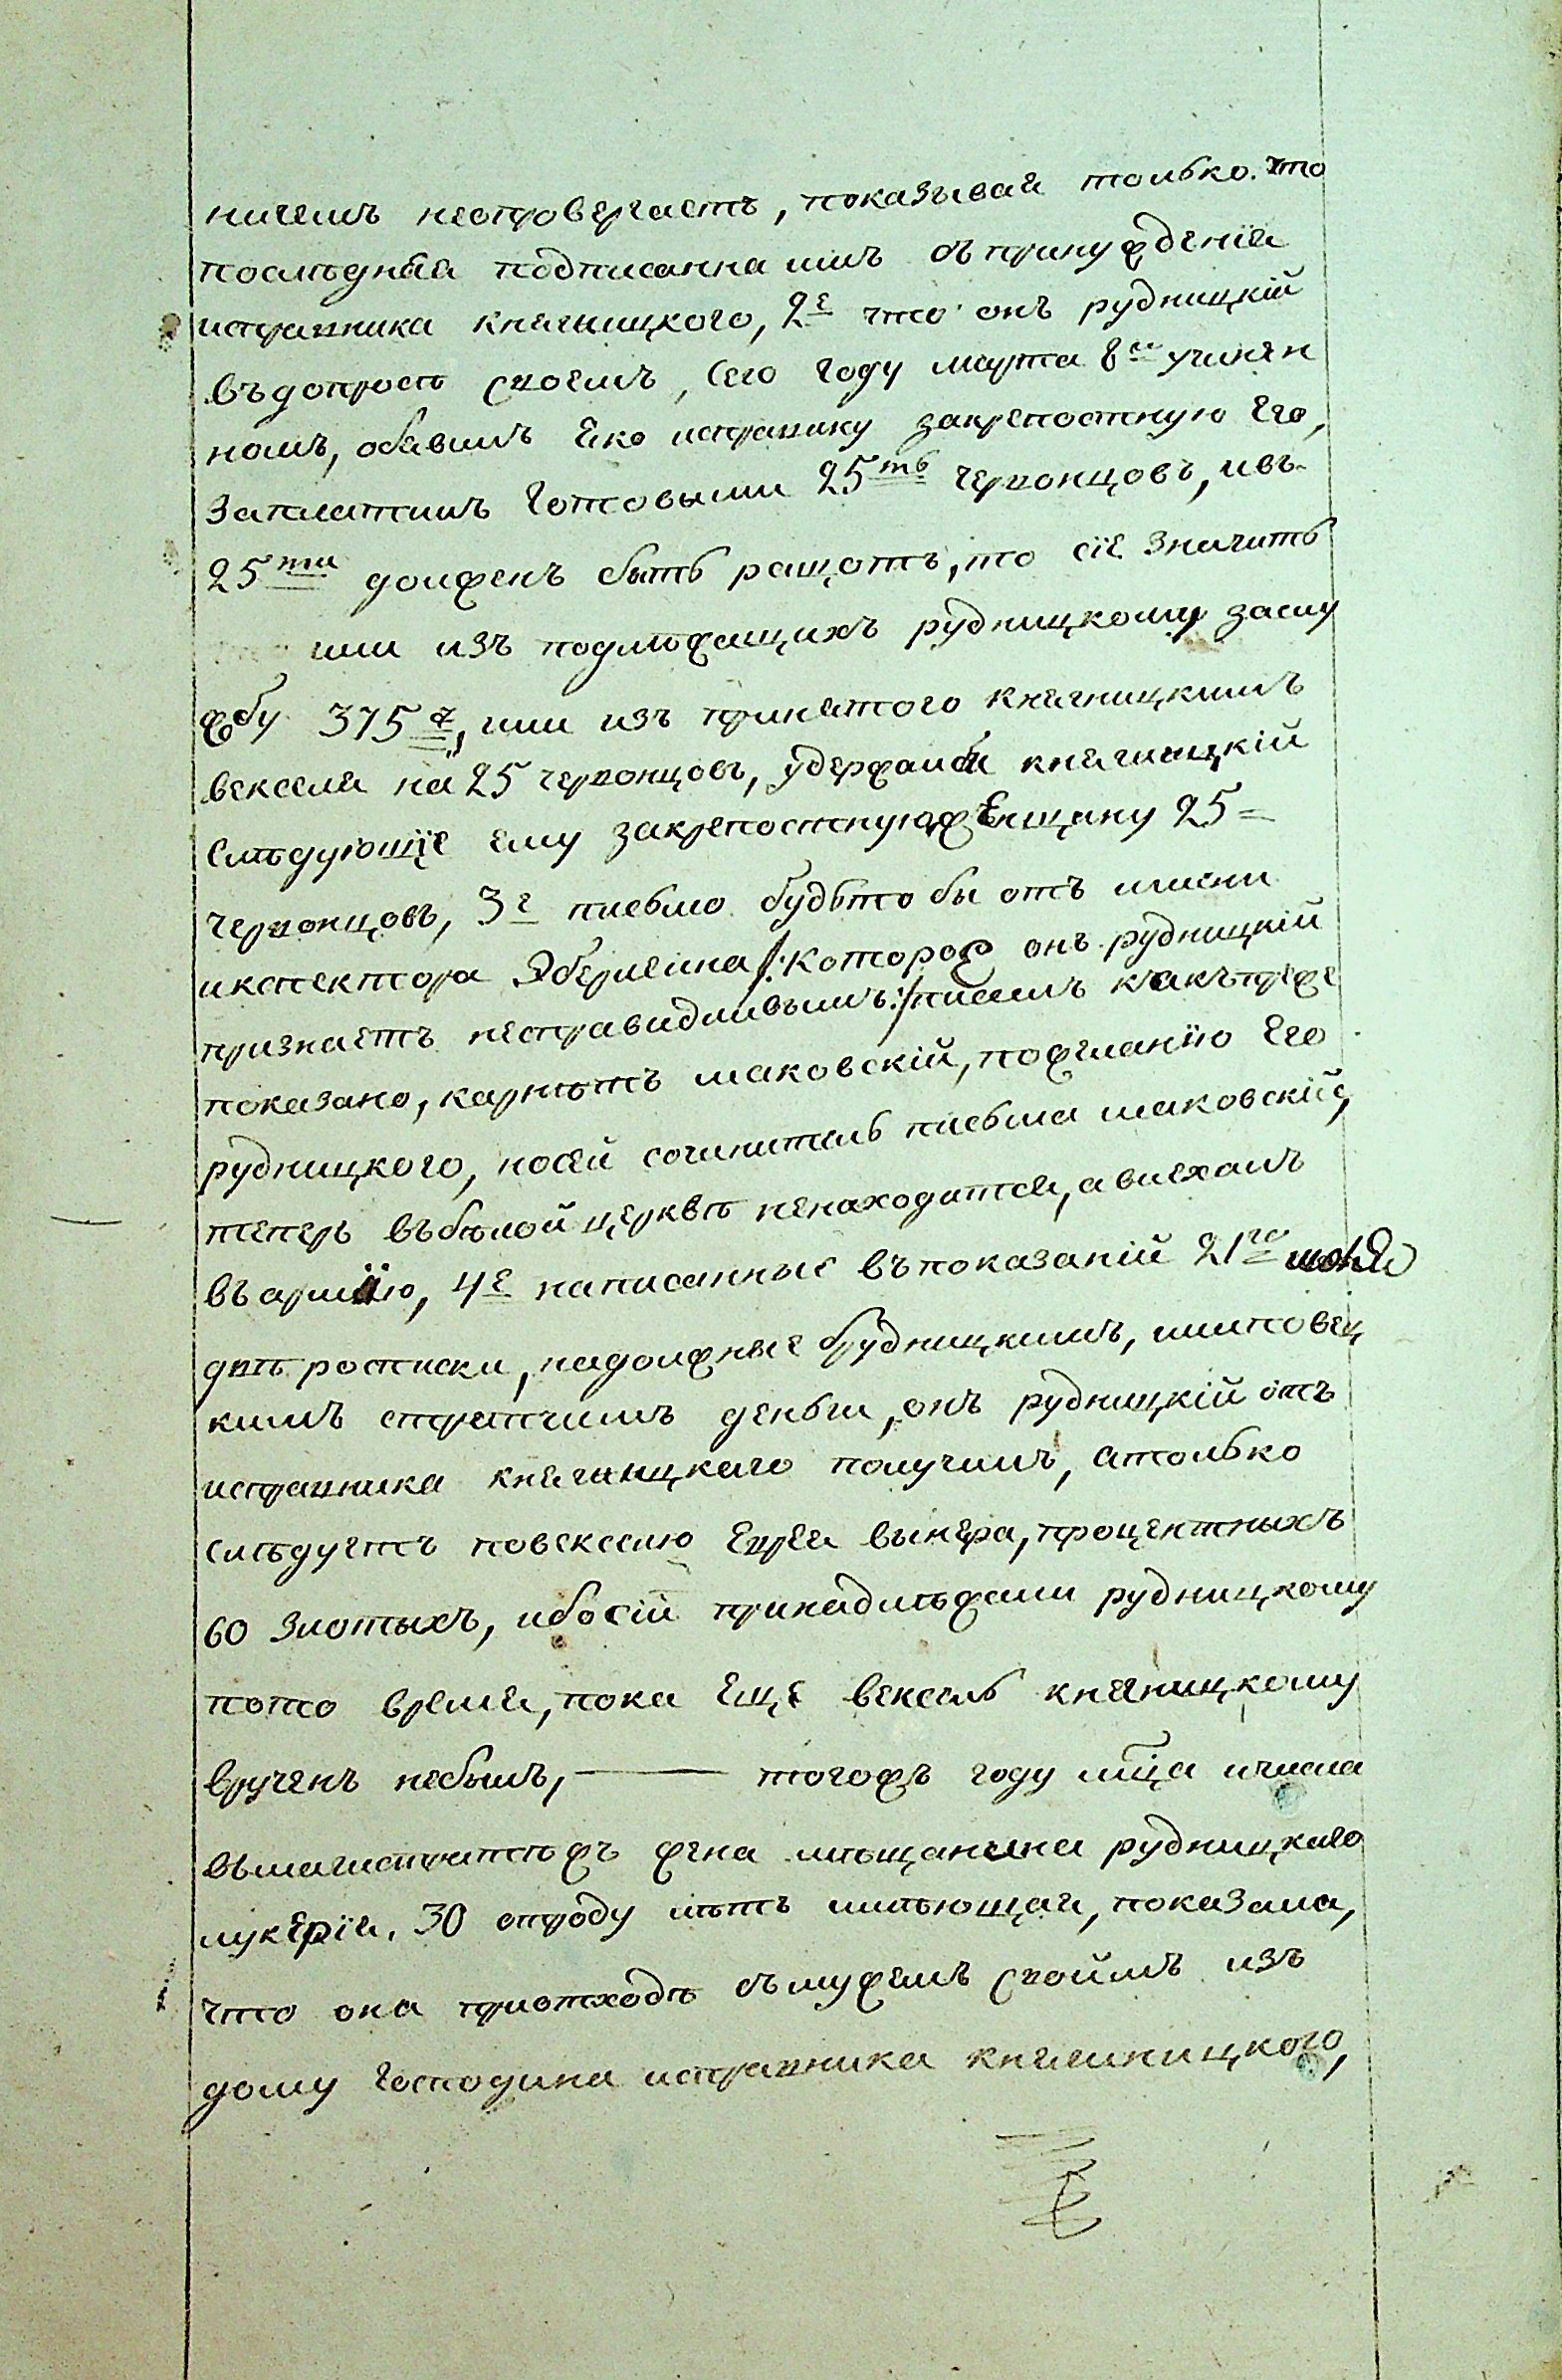 ничемъ неопровергаетъ, показывая только. что
последняя подписанна имъ съ принужденія
исправника княгницкого, 2е что онъ рудницкій
въдопросѣ своемъ, сего году марта 8го учинен
номъ, обявилъ Яко исправнику закрепостную Его,
заплатилъ готовыми 25ть червонцовъ, ивъ
25ти долженъ быть ращотъ, то сіе значитъ
или изъ подлѣжащихъ рудницкому заслу
жбу 375 р, или изъ принятого княгницкимъ
векселя на 25 червонцовъ, удержалъ княгницкій
слѣдующіе ему закрепостную женщину 25
червонцовъ, 3е письмо будьто бы отъ имени
инспектора Эберлеина /: которое онъ рудницкій
признаетъ несправидливымъ :/ писалъ какъ преже
показано, карнетъ маковскій, пожеланію Его
рудницкого, носей сочинитель письма маковскій,
теперь въбѣлой церквѣ ненаходится, авиехалъ
въармію, 4е написанные въпоказаній 21го июня
двѣ росписки, надолжные брудницкимъ, илиповец
кимъ стряпчимъ деньги, онъ рудницкій отъ
исправника княгницкаго получилъ, атолько
слѣдуетъ повекселю Еврея винера, процентныхъ
60 злотыхъ, ибосій принадилѣжали рудницкому
пото время, пока Еще вексель княгницкому
врученъ небылъ, — тогожъ году мца ичисла
вмагистратѣжъ жена мѣщанина рудницкаго
лукерія. 30 отроду лѣтъ имѣющая, показала,
что она приотходѣ съмужемъ своимъ изъ
дому господина исправника княгницкого,